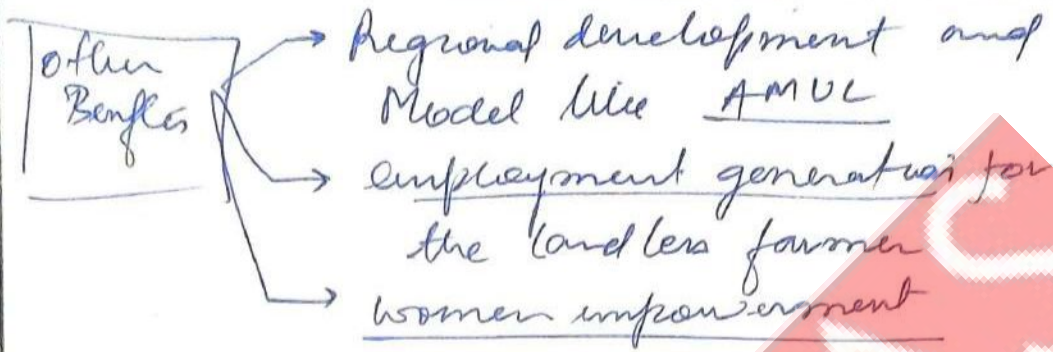 other
Benefits
Regional development and
Model like AMUL
employment generation for
the landless farmer
women empowerment